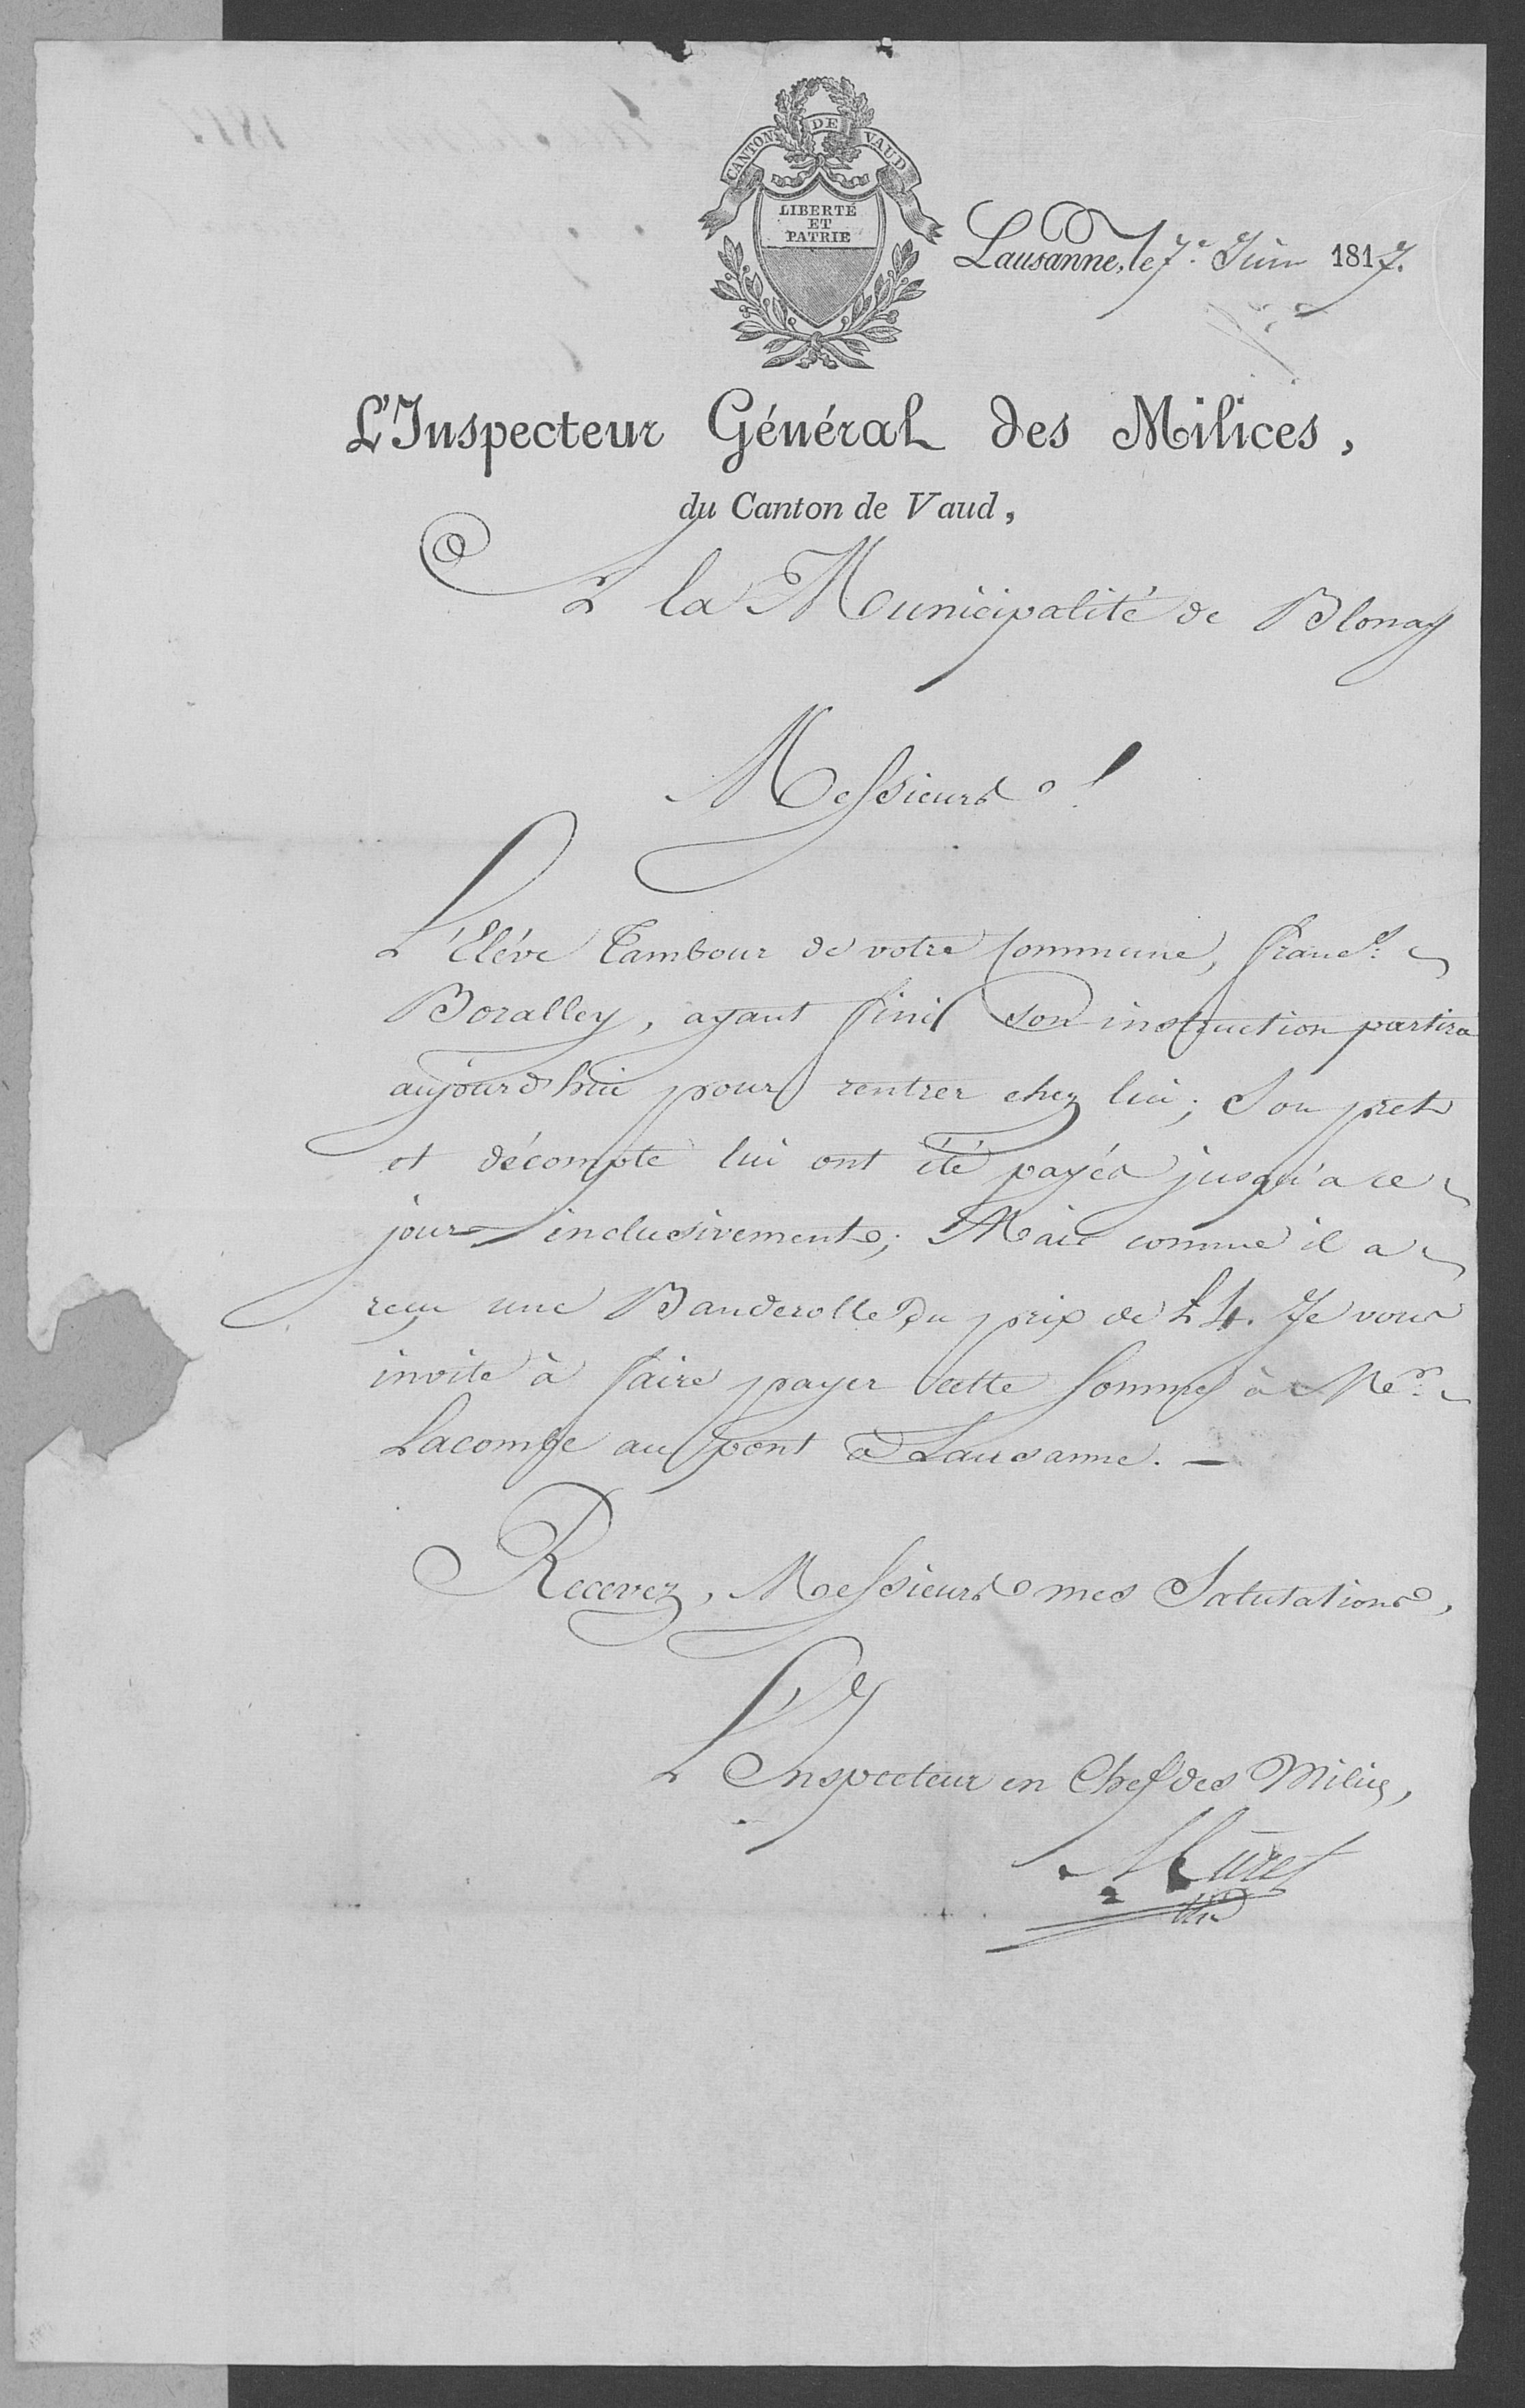 CANTON DE VAUD
LIBERTÉ
ET
PATRIE
Lausanne, le 7.e Juin 1817.
L'Inspecteur Général des Milices,
du Canton de Vaud,
à la Municipalité de Blonay
Messieurs !
L'Eléve Tambour de votre Commune, Franç.s
Boralley, ayant fini son instruction partira
aujourd'hui pour rentrer chez lui; Son pret
et décompte lui ont été payés jusqu'a ce
jour inclusivement; Mais comme il a
reçu une Banderolle du prix de L 4. Je vous
invite à faire payer cette somme à
Lacombe au pont à Lausanne. —
Recevez, Messieurs mes Salutations,
L'Inspecteur en Chef des Milices,
Muret